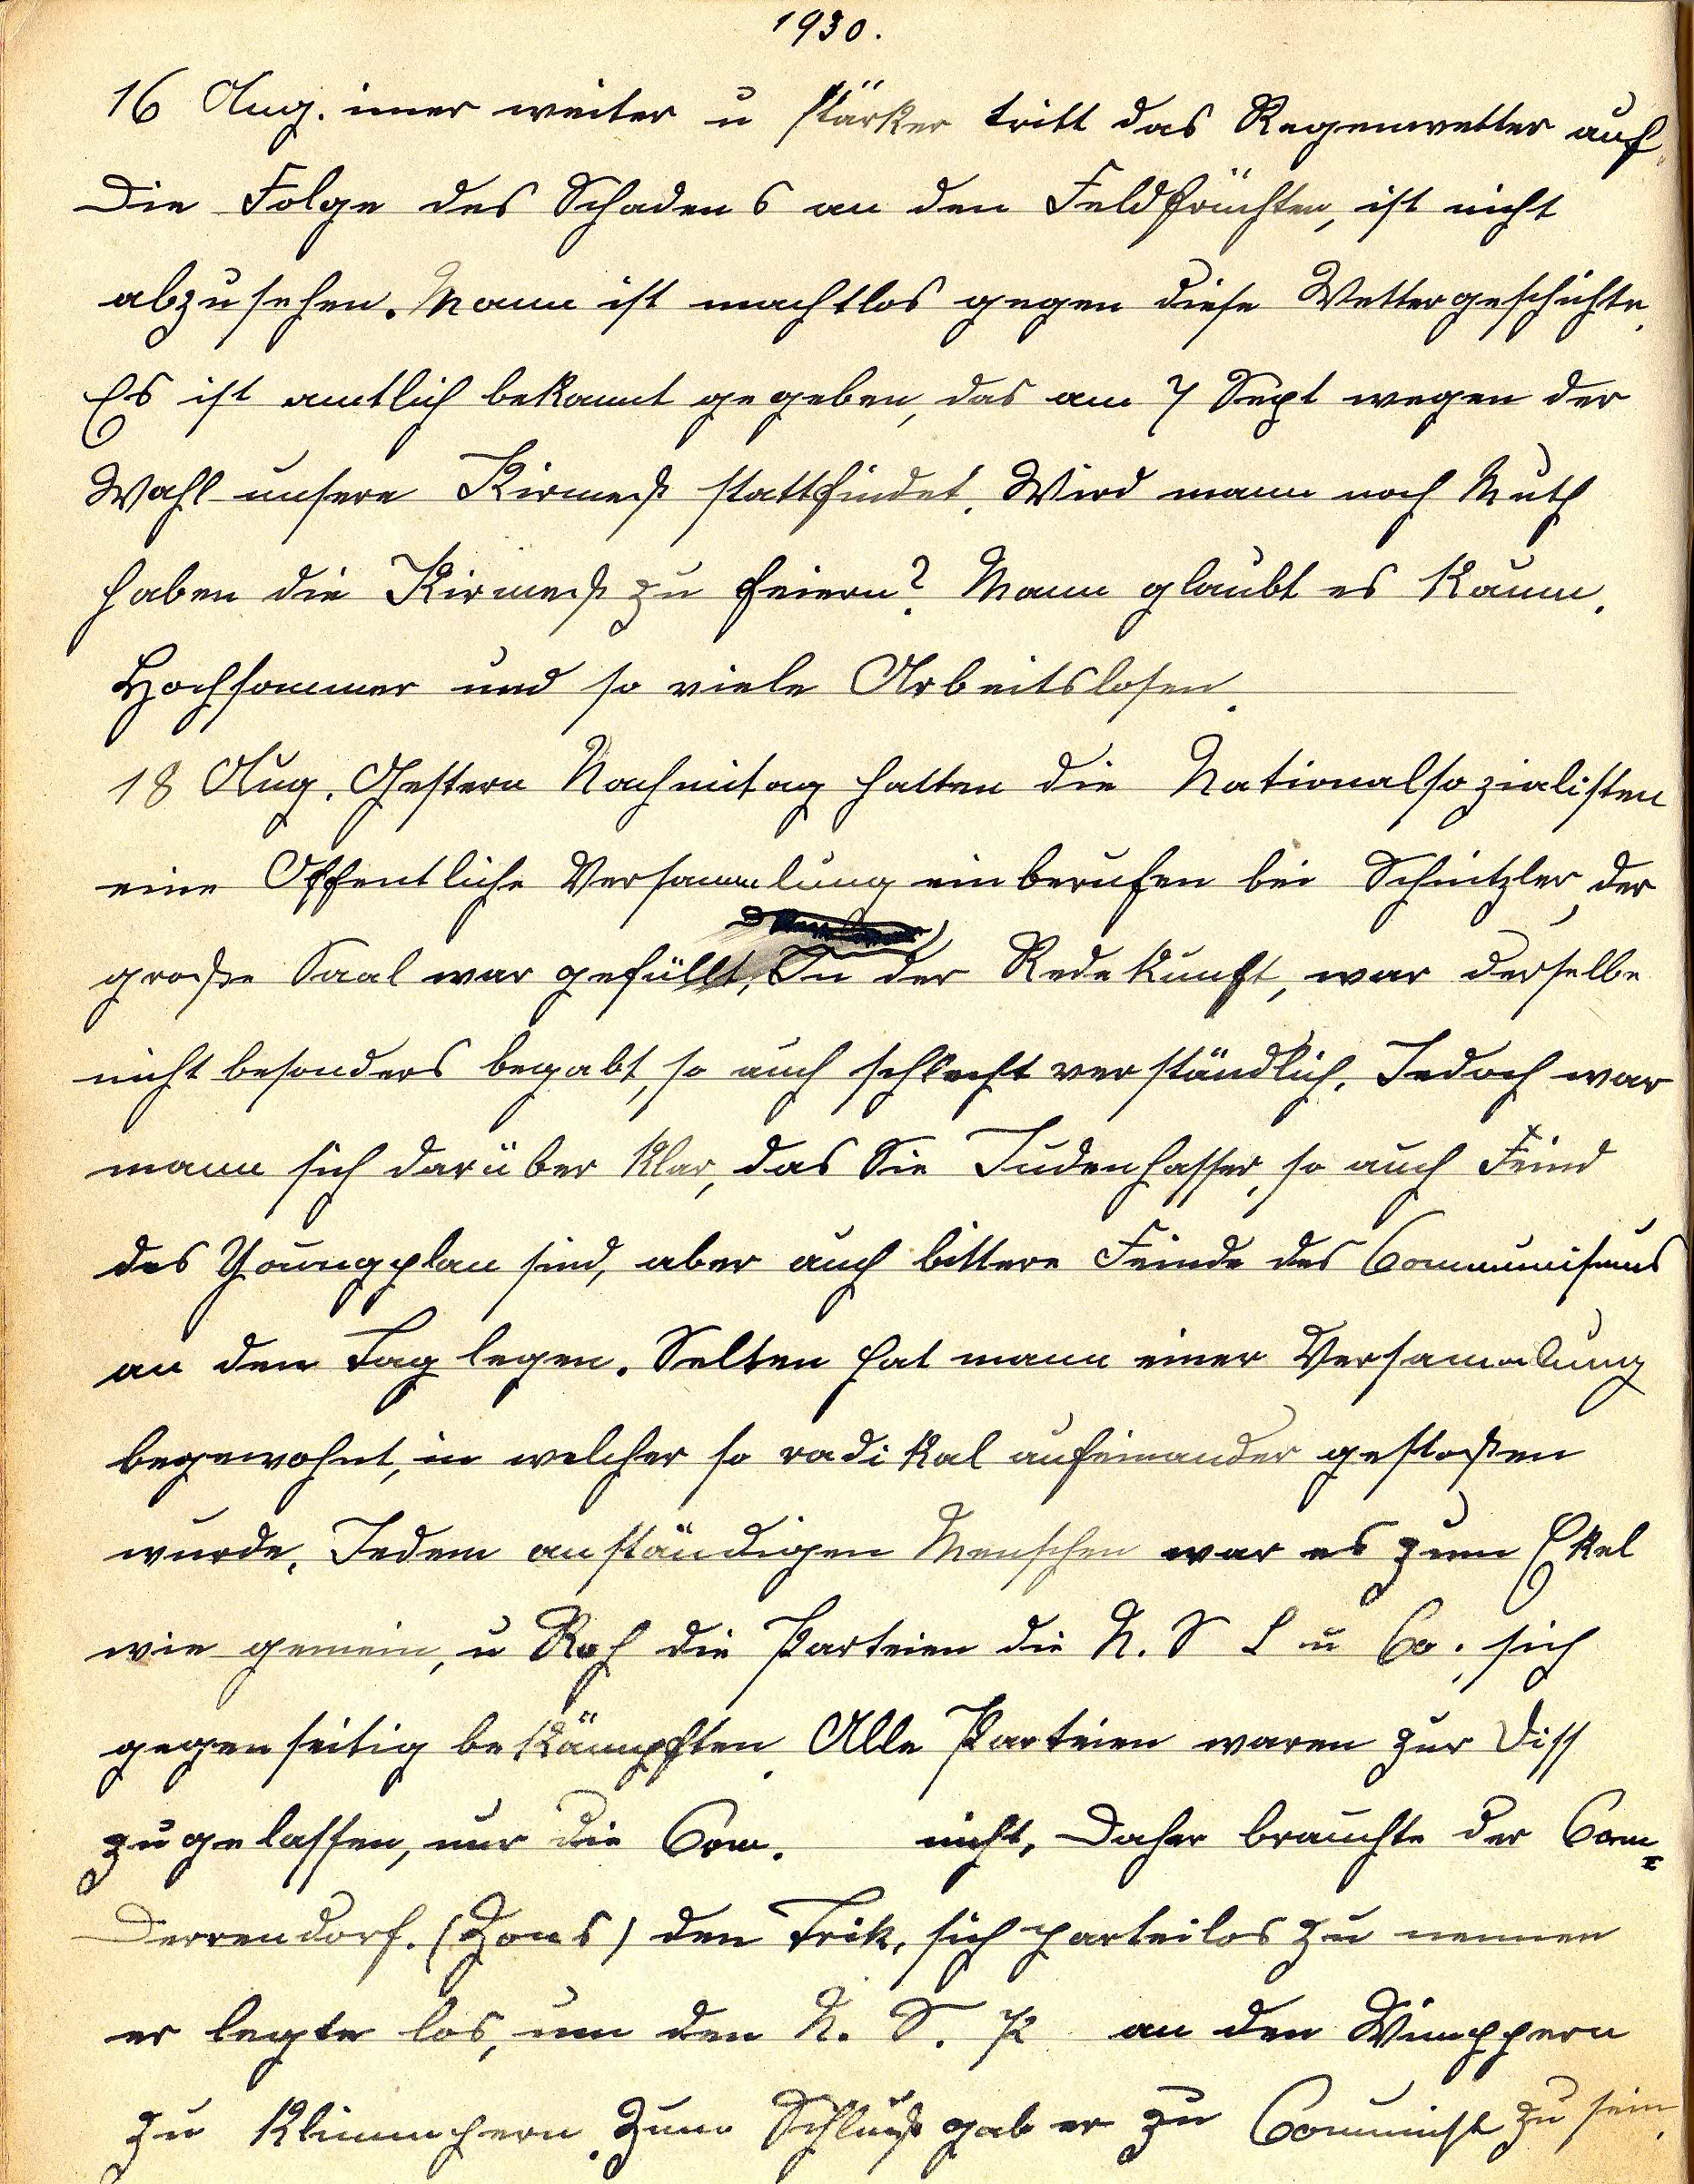 1930.
16 Aug. imer weiter u stärker tritt das Regenwetter auf.
Die Folge des Schadens an den Feldfrüchten, ist nicht
abzusehen. Mann ist machtlos gegen diese Wettergeschichte.
Es ist amtlich bekannt gegeben, das am 7 Sept wegen der
Wahl unsere Kirmeß stattfindet. Wird mann noch Muth
haben die Kirmeß zu feiern? Mann glaubt es kaum.
Hochsommer und so viele Arbeitslosen.
18 Aug. Gestern Nachmitag hatten die Nationalsozialisten
eine Offentliche Versammlung einberufen bei Schnitzler, der
große Saal war gefüllt. In der Redekunst, war derselbe
nicht besonders begabt, so auch schlecht verständlich. Jedoch war
mann sich darüber klar, das Sie Judenhasser, so auch Feind
des Youngplan sind, aber auch bittere Feinde des Communismus
an den Tag legen. Selten hat mann einer Versammlung
begewohnt, in welcher so radikal aufeinander gestoßen
wurde. Jedem anständigen Menschen war es zum Ekel
wie gemein, u Roh die Parteien die N. S L u Co. sich
gegenseitig bekämpften. Alle Parteien waren zur Diss
zugelassen, nur die Com. nicht. Daher brauchte der Com=
Derrendorf. (Zons) den Trik, sich parteilos zu nennen
er legte los, um den N. S. P an den Wimppern
zu klimmpern. Zum Schluß gab er zu Communist zu sein.